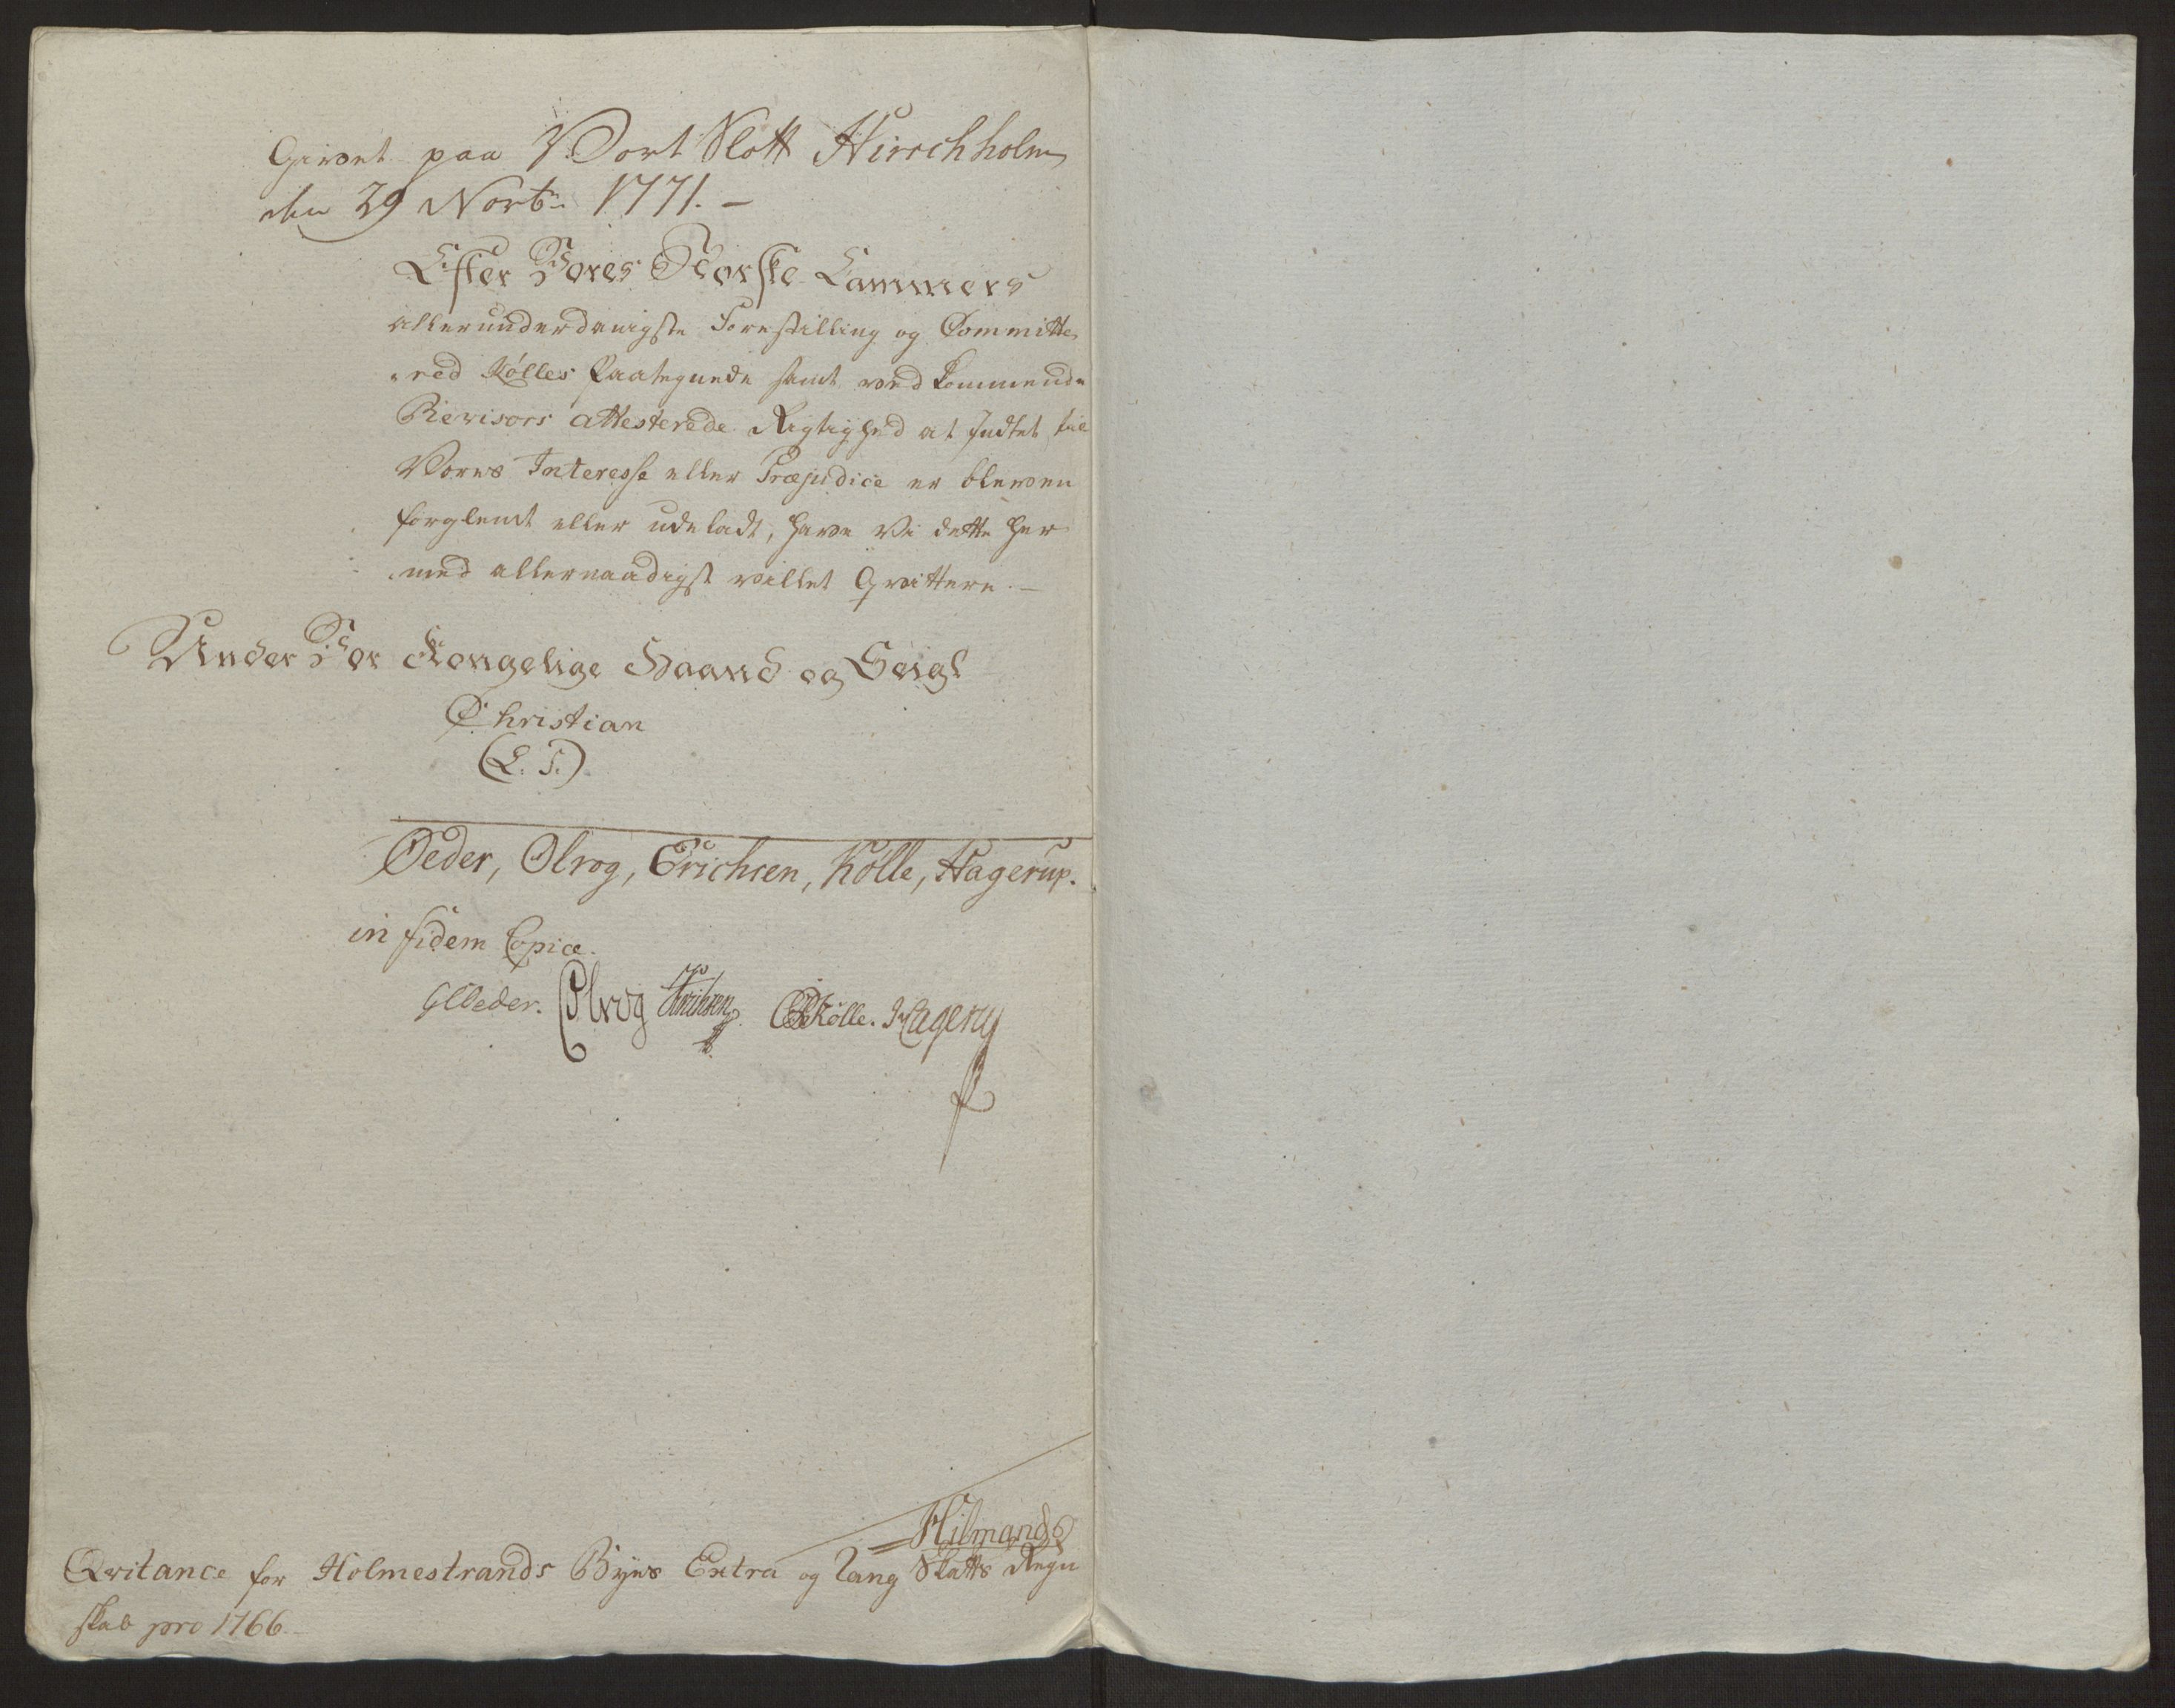 Givet paa Vort Slott Hirschholm
den 29 Novbr: 1771. —
Efter Vores Norske Cammers
allerunderdanigste Forestilling og Committe
red Kølles Paategnede samt vedkommende
Revisors attesterede Rigtighed at Intet til
Vores Interesse eller Præjudice er bleven
forglemt eller udeladt, have Vi dette her
med allernaadigst villet Qvittere. —
Under Vor Kongelige Haand og Seigl
Christian
(L. S.)
Oeder, Olrog, Erichsen, Kølle, Hagerup.
in fidem Copiæ.
GCOeder. Olrog Erichsen Kølle. Hagerup
Hilmand
Qvitance for Holmestrands Byes Extra og Tang Skatts Regn
skab pro 1766.